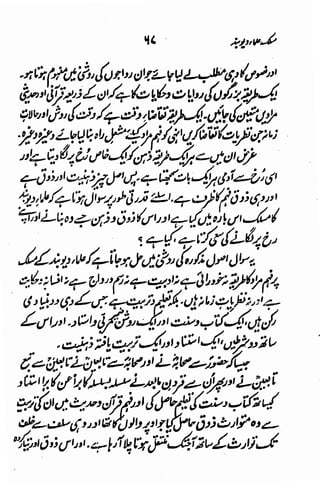 مسلک علماء دیوبند ۶۷
اور نصوص کا وہی مطلب لے لیا جائے جو ان رواجوں کی روشنی میں مفہوم ہوتا ہو۔
ایک طریقہ بزرگوں کی روایات وحکایات کا ہے کہ ان کے ذریعہ قرآنی اور حدیثی
مرادیں متعین کی جائیں۔ ایک طریقہ تقاضائر وقت ہے کہ وقت کی روش اور حالاتِ
زمانہ جن نظریات کا تقاضا کریں انہی کو فہم مراد کیلئے مشعلِ راہ بنا لیا جائے وغیرہ وغیرہ۔
غرض ان میں سے ہر ایک طریقہ ذہن کو ایک خاص رُخ پر لگا دیتا ہے اور
اسی رُخ سے آدمی ہر ایک بات سمجھتا ہے، پس اصل چیز ذہنیت اور ذوق ہے
اور وہی ذوقِ فہم کا ظرف ہے، اسلئے قدرتی طور پر سوال ہوتا ہے کہ علماء دیوبند
کا مسلک اس بارہ میں کیا ہے اور اس کا ذوق و ذہن جسے وہ بنانے اور اپنے
رُخ پر لگانے کی سعی کرتا ہے، کیا ہے؟
یہ سوال اصول مذکورہ کی روشنی میں حل ہو جاتا ہے کہ علماء دیوبند کے مسلک
پر فہم مراد کا طریقہ نہ خود رائی ہے نہ ادبیت ہے نہ رسم و رواج ہے نہ افسانہ و حکایت
ہے اور نہ نظریاتِ زمانہ ہیں۔ بلکہ تعلیم و تربیت ہے جس کے وہی دو بنیادی
رکن ہیں، ایک کتاب و سنت اور ایک روشن ضمیر مربی و استاد۔ اور اس کے
ساتھ دو شرطیں، ایک استناد اور ایک تربیت یافتہ ذہنیت۔
جیسا کہ حضورؐ سے صحابہؓ نے اور صحابہؓ سے تابعینؒ نے تابعینؒ سے تبع
تابعینؒ نے اور پھر اُن سے قرون مابعد نے سلسلہ بسلسلہ کابراً عن کابر استناد
کیساتھ کتاب و سنت کی تعلیم حاصل کی اور فہم قرآن و حدیث میں ان کی تربیت
سے وہ متوارث ذوق حاصل کیا جو اوپر والوں کا تھا اور وہی سلف سے خلف
تک توارث کے ساتھ آجتک منتقل ہوتا چلا آ رہا ہے۔ اور اس ذوق اور تیار کردہ